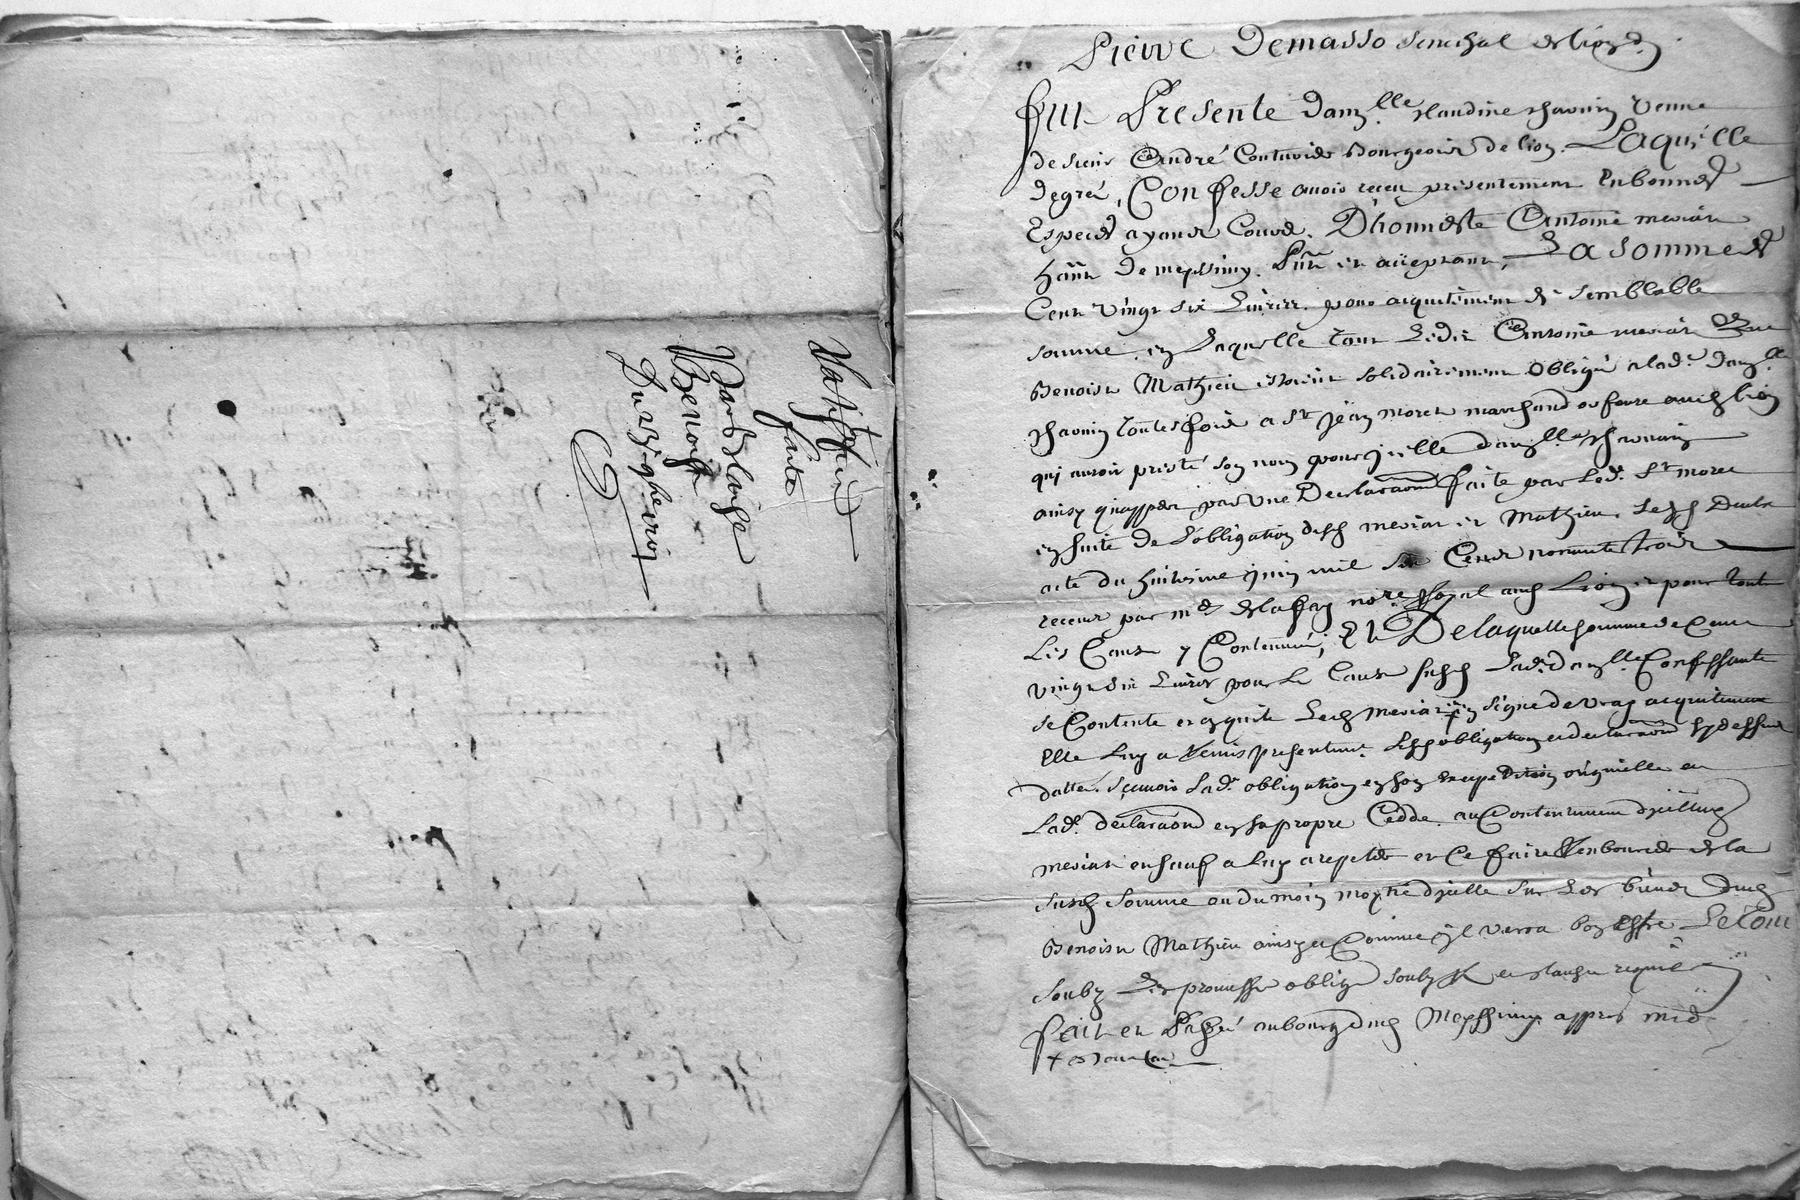 Ratiffié
faite
par Blaise
Benoist
Durzi
Pierre Demasso senechal de lion
Fut Presente dam.lle Claudine Chavanis veuve
de sieur André Bourgeois de lion. Laquelle
de gré, Confesse avoir receu présentement en bonnes
Especes ayant Cours. D'honneste Antoine merian
hānt de meyssimy. Pn̄t et acceptant, La somme de
Cent vingt six Livres. pour acquittement de semblable
somme, en Laquelle tant Ledit Antoine merian Que
Benoist Mathieu estoient solidairement obligé a lad. dam.lle
Chavanis toutesfois a Sr Jean moret marchand
qui auroit presté son nom pour icelle dam.lle Chavanis
ainsy qu'appert par une Declaraōn faite par Led. Sr moret
en suite de L'obligation desd merian et Mathieu. Lesd Deux
acte du huitiesme juin mil six Cent nonante trois
receus par me delafay nore Royal aud Lion et pour toute
Les Causes y Contenues, De laquelle somme de Cent
vingt six Livres pour Le Cause susd Lad. dam.lle Confessante
se Contente et quitte Led merian en signe de vray acquittement
Elle Luy a Remis présentemt. Lesd obligation et declaraōn cy dessus
datté. sçavoir Lad. obligation en son expedition originelle et
Lad. declaraōn en sa propre Cedde. au Contentement dud
merian en sauf a Luy a repeter et Ce faire Rembourcer de la
susd somme ou du moins moytié d'icelle sur Les biens dud
Benoist Mathieu ainsy et Comme il verra bon estre Le tout
soubz Les promesses obligō soubz et clauses requises
fait et Passé au bourg dud Meyssimy appres midy